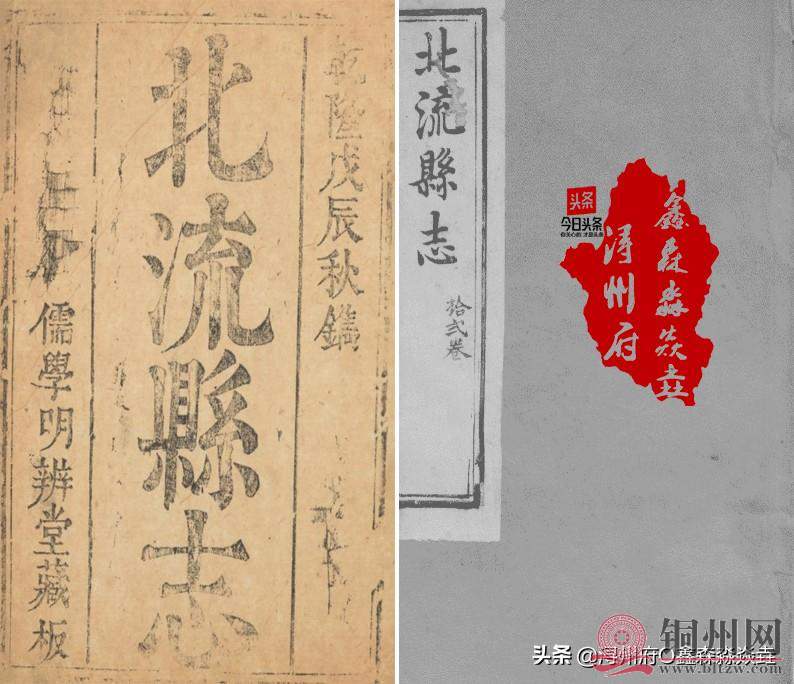 乾隆戊辰秋鐫
北流縣志
儒學明辨堂藏板
北流縣志
拾弍卷
头条
今日头条
你关心的 才是头条
鑫森淼焱垚
浔州府
铜州网
www.bltzw.com
头条 @浔州府O鑫森淼焱垚